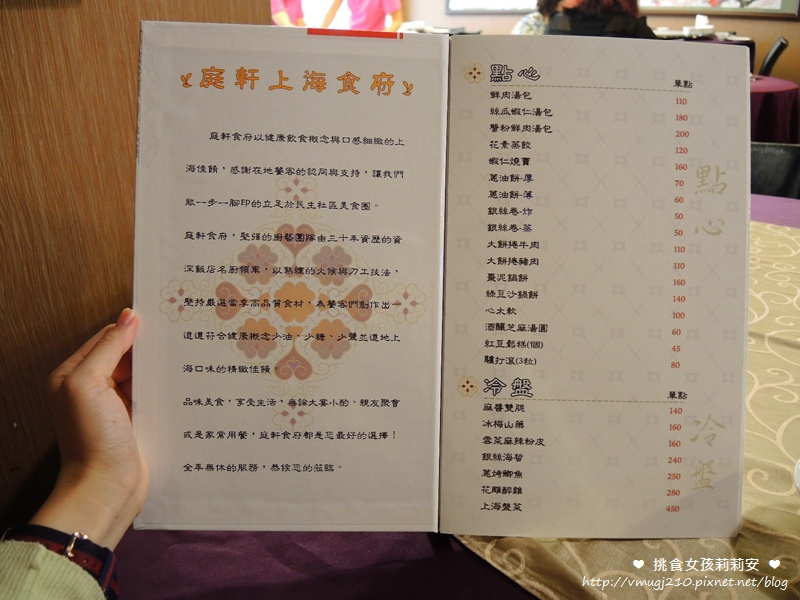 庭軒上海食府
庭軒食府以健康飲食概念與口感細緻的上
海佳餚，感謝在地饕客的認同與支持，讓我們
能一步一腳印的立足於民生社區美食圈。
庭軒食府，堅強的廚藝團隊由三十年資歷的資
深飯店名廚領軍，以熟練的火燴與刀工技法，
堅持嚴選當季高品質食材，為饕客們創作出一
道道符合健康概念少油、少糖、少鹽並道地上
海口味的精緻佳餚。
品味美食，享受生活，無論大宴小酌、親友聚會
或是家常用餐，庭軒食府都是您最好的選擇！
全年無休的服務，恭候您的蒞臨。
點心 單點
鮮肉湯包 110
絲瓜蝦仁湯包 180
蟹粉鮮肉湯包 200
花素蒸餃 120
蝦仁燒賣 160
蔥油餅-厚 70
蔥油餅-薄 60
銀絲卷-炸 50
銀絲卷-蒸 50
大餅捲牛肉 110
大餅捲豬肉 110
棗泥鍋餅 160
綠豆沙鍋餅 140
心太軟 100
酒釀芝麻湯圓 60
紅豆鬆糕(個) 45
驢打滾(3粒) 80
點心
冷盤 單點
麻醬雙脆 140
冰梅山藥 160
雪菜麻辣粉皮 160
銀絲海蜇 240
蔥烤鯽魚 250
花雕醉雞 280
上海盤菜 450
冷盤
♥ 挑食女孩莉莉安 ♥
http://vmugj210.pixnet.net/blog